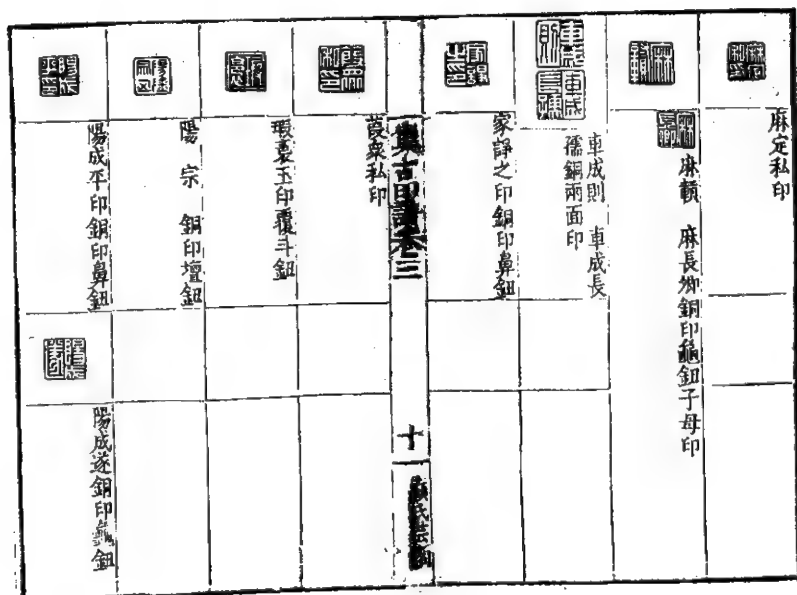 麻定私印
麻䪼 麻長卿銅印龜鈕子母印
車成則 車成長
孺銅兩面印
家諍之印銅印鼻鈕
集古印譜卷三
十一
顧氏芸閣
葭衆私印
瑕裛玉印覆斗鈕
陽宗 銅印壇鈕
陽成平印銅印鼻鈕
陽成遂銅印龜鈕